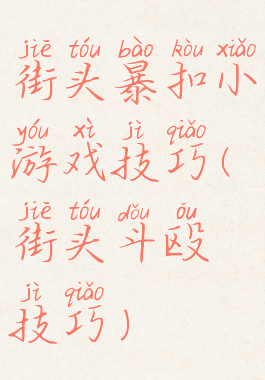 jiē tóu bào kòu xiǎo
街头暴扣小
yóu xì jì qiǎo
游戏技巧(
jiē tóu dǒu ōu
街头斗殴
jì qiǎo
技巧)